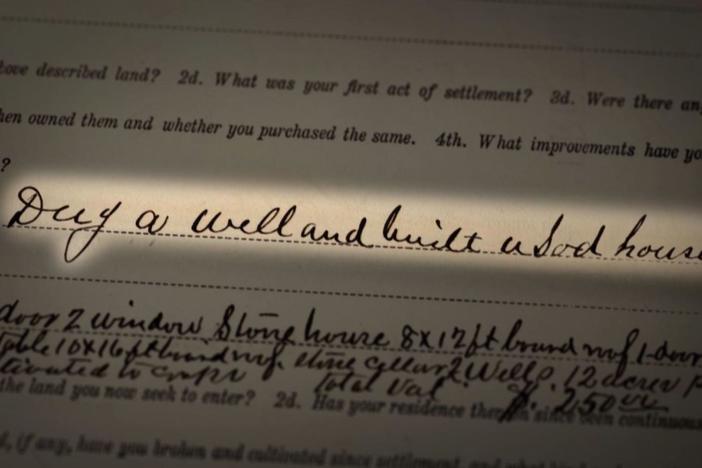 ove described land? 2d. What was your first act of settlement? 3d. Were there an
hen owned them and whether you purchased the same. 4th. What improvements have yo
?
Dug a well and built a Sod hous
door 2 window Stone house 8x12 ft board roof 1 door
10x16 ft board roof. stone cellar 2 Wells. 12 acres
to crops Total Val. $. 250 00
the land you now seek to enter? 2d. Has your residence thereon since been continuous
d, if any, have you broken and cultivated since settlement, and what